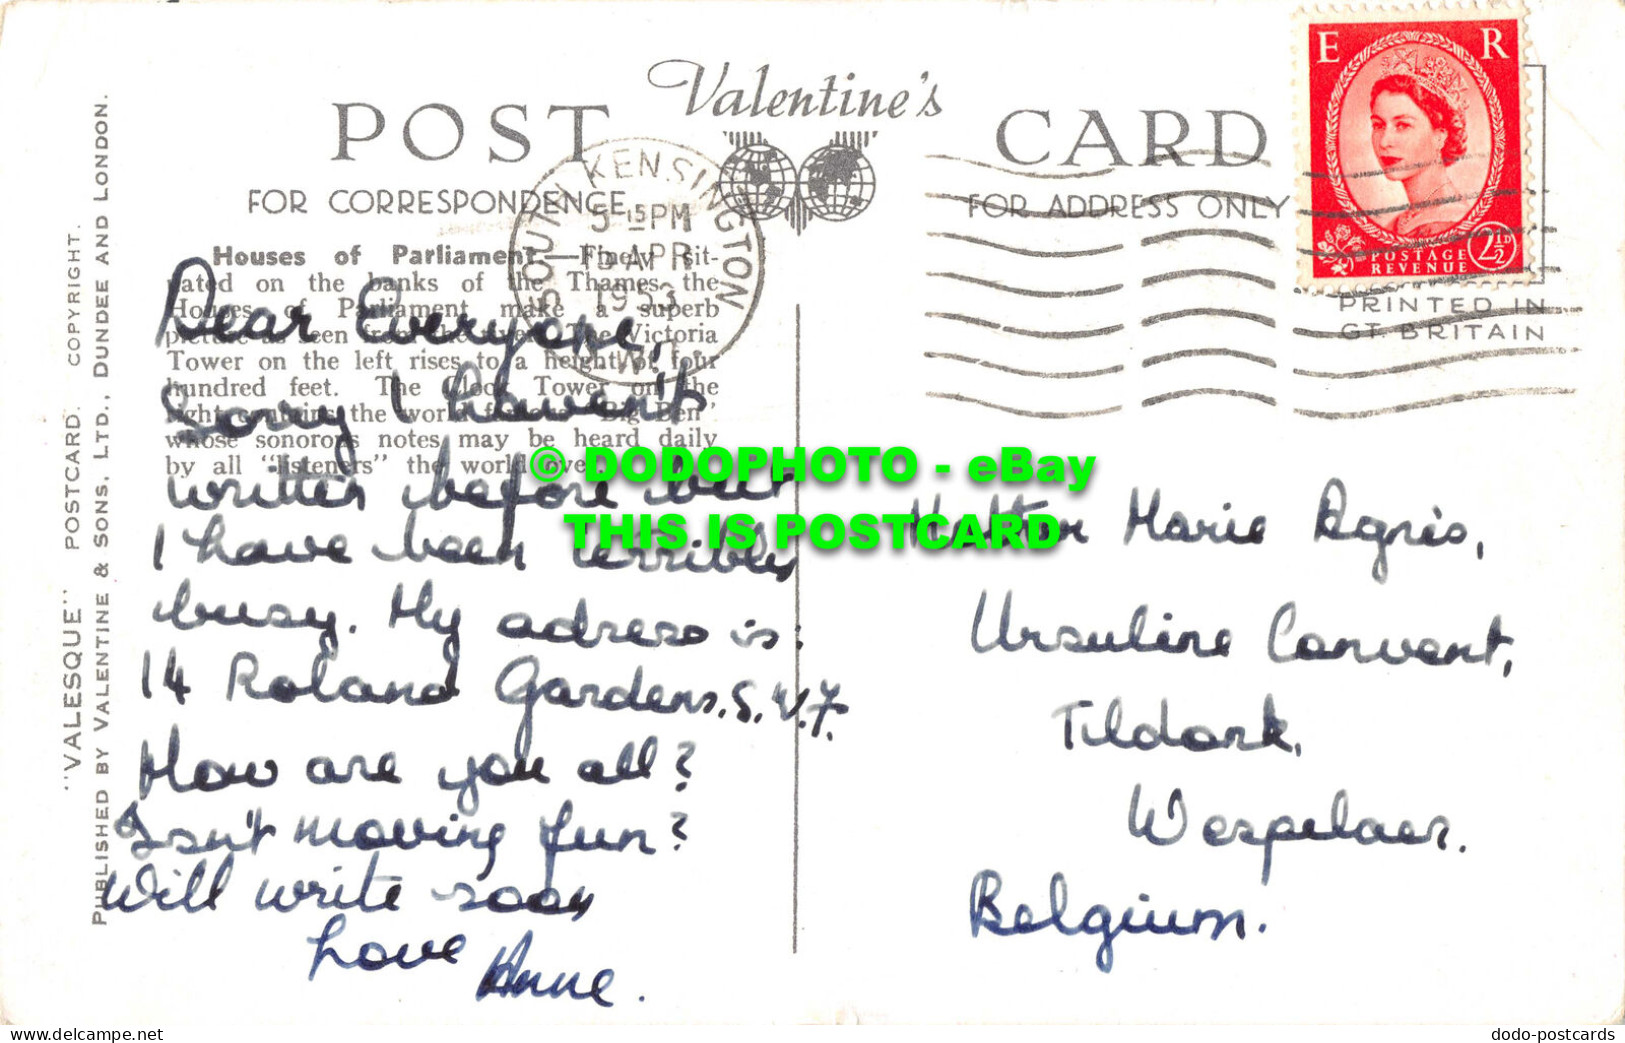 Valentine's
POST CARD
FOR CORRESPONDENCE
FOR ADDRESS ONLY
E R
POSTAGE
REVENUE
2½D
PRINTED IN
GT. BRITAIN
SOUTH KENSINGTON
5 15 PM
APR
1953
S.W.7.
Houses of Parliament.—Finely sit-
uated on the banks of the Thames, the
Houses of Parliament make a superb
picture as seen from the river. The Victoria
Tower on the left rises to a height of four
hundred feet. The Clock Tower on the
right contains the world famous 'Big Ben'
whose sonorous notes may be heard daily
by all "listeners" the world over.
Dear Everyone,
Sorry I haven't
written before but
I have been terribly
busy. My adress is:
14 Roland Gardens. S.W.7.
How are you all?
Isn't moving fun?
Will write soon
Love Anne.
Marie Agnès,
Ursuline Convent,
Tildonk,
Wespelaer.
Belgium.
"VALESQUE" POSTCARD. COPYRIGHT.
PUBLISHED BY VALENTINE & SONS, LTD., DUNDEE AND LONDON.
© DODOPHOTO - eBay
THIS IS POSTCARD
https://www.delcampe.net
dodo-postcards